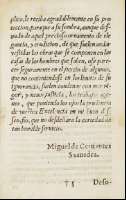 plico, le reciba agradablemente en su pro
teccion, para que a su sombra, aunque des
nudo de aquel precioso ornamento de ele
gancia, y erudicion, de que suelen andar
vestidas las obras que se componen en las
casas de los hombres que saben, ose pare
cer seguramente en el juyzio de algunos,
que no conteniendose en los limites de su
ignorancia, suelen condenar con mas ri
gor, y menos justicia, los trabajos age
nos, que poniendo los ojos la prudencia de
vuestra Excelencia en mi buen des
seo, fio, que no desdeñara la cortedad de
tan humilde servicio.
Miguel de Ceruantes
Saauedra.
Deso-